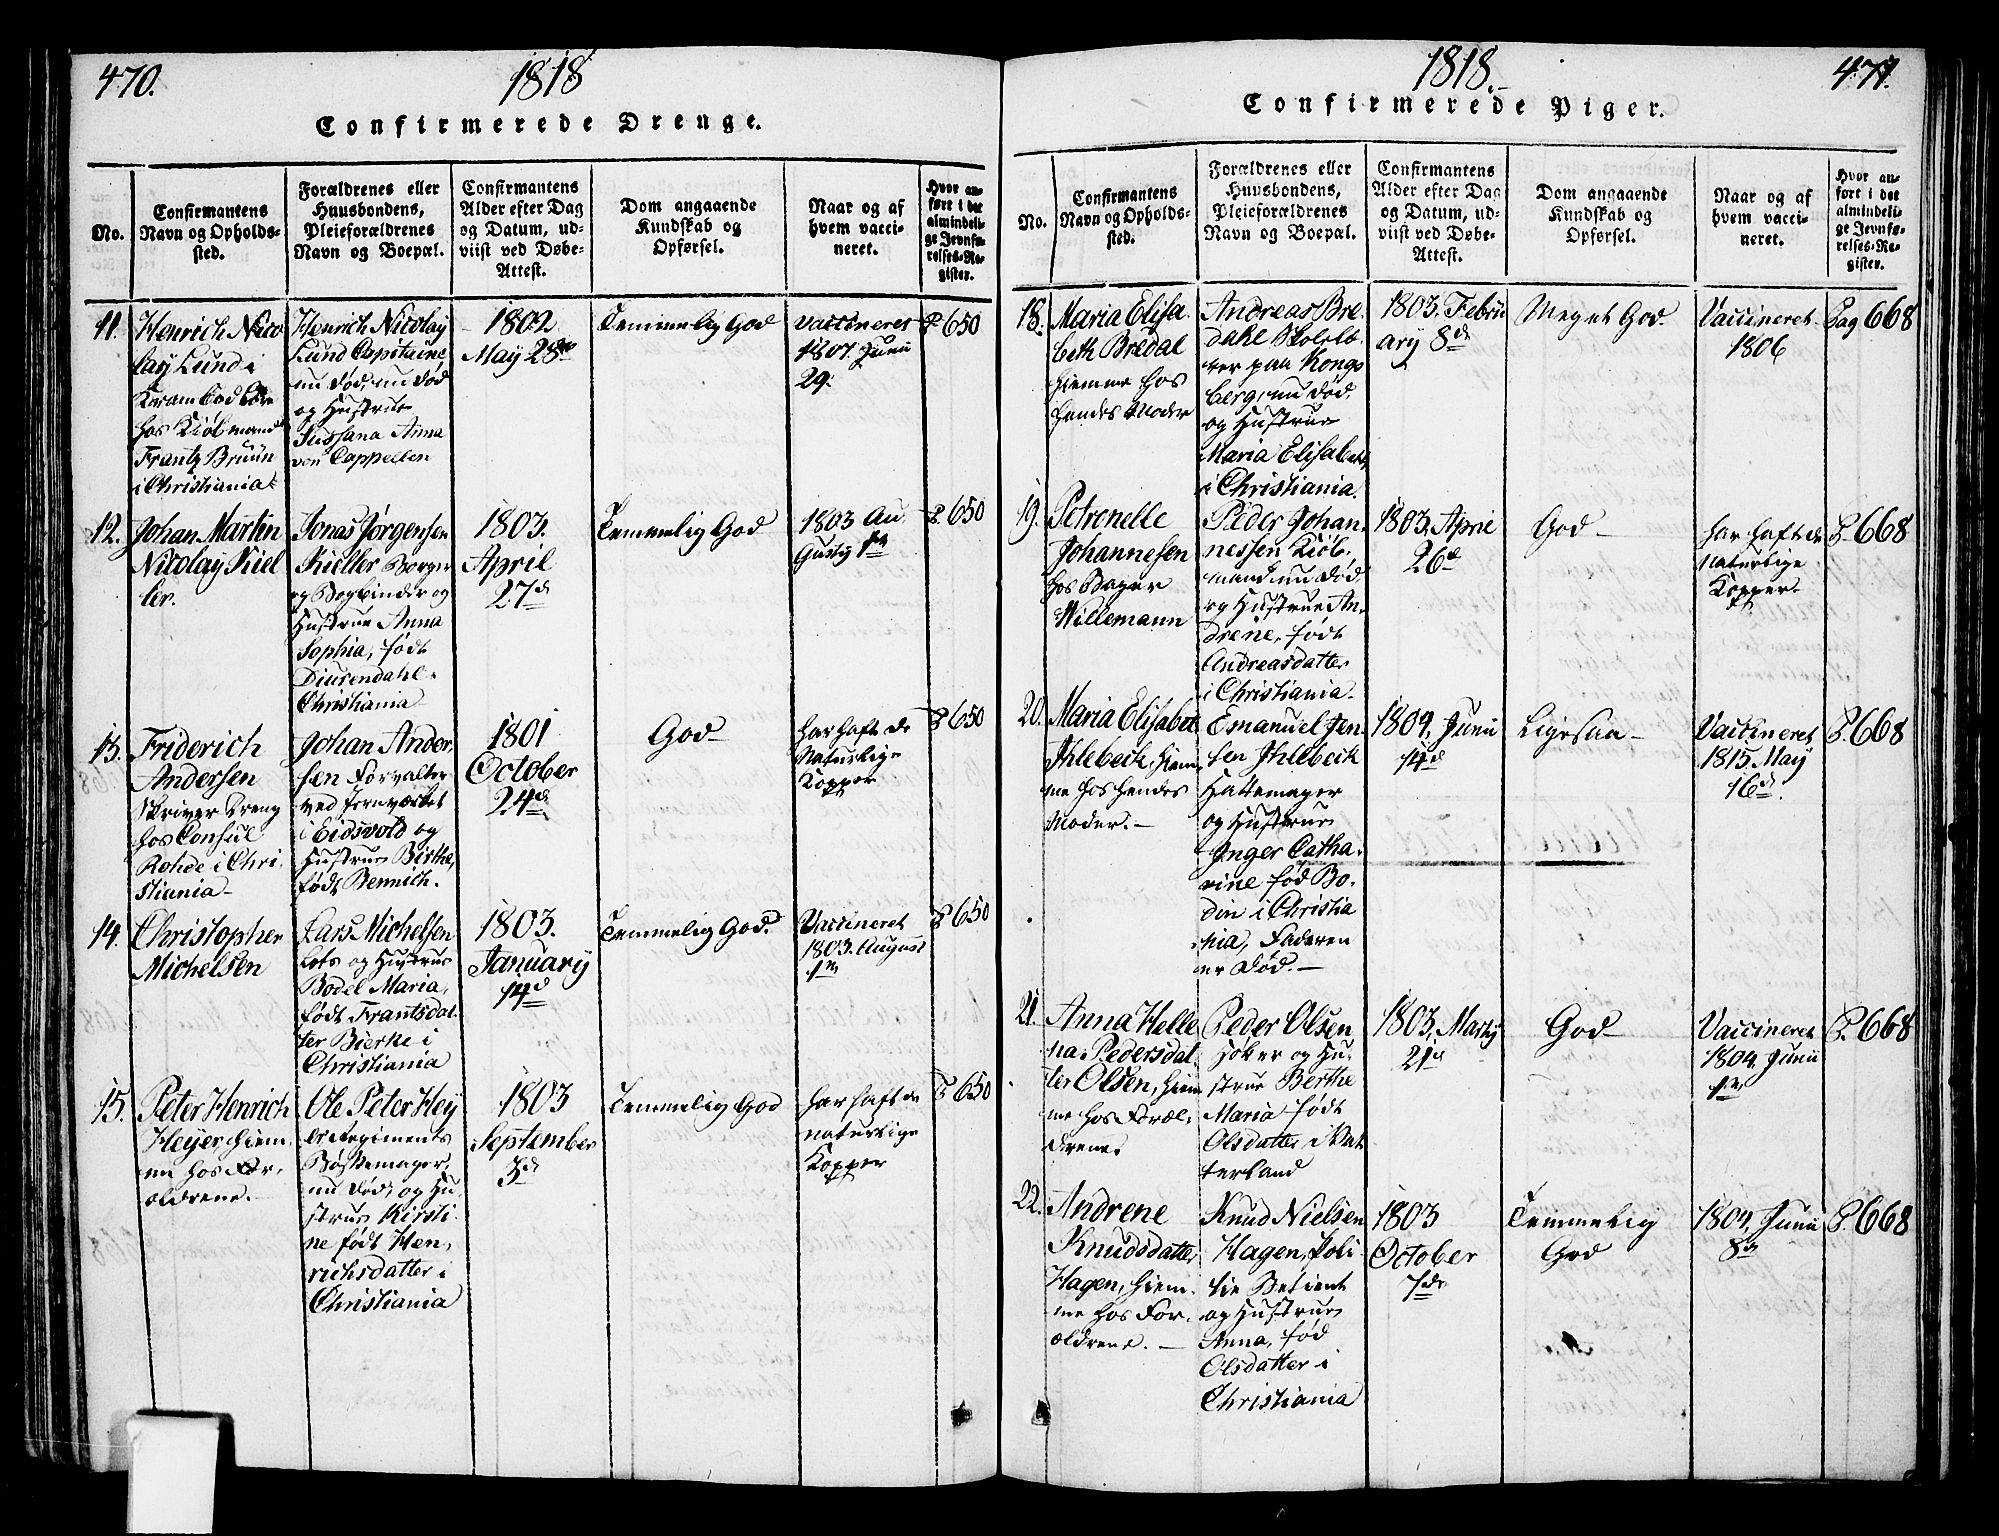 470.
1818
Confirmerede Drenge.
No.
Confirmantens
Navn og Opholds-
sted.
Forældrenes eller
Huusbondens,
Pleieforældrenes
Navn og Boepæl.
Confirmantens
Alder efter Dag
og Datum, ud-
viist ved Døbe-
Attest.
Dom angaaende
Kundskab og
Opførsel.
Naar og af
hvem vacci-
neret.
Hvor an-
ført i det
almindeli-
ge Jevnfø-
relses-Re-
gister.
11.
Henrich Nico
lay Lund i
Krambod Lære
hos Kiøbmand
Frantz Bruun
i Christiania
Henrich Nicolay
Lund Capitaine
nu død, nu død
og Hustrue
Sussana Anna
von Cappellen
1802
May 28de
Temmelig God
vaccineret
1807. Junii
29.
P 650
12.
Johan Martin
Nicolay Kiel
ler.
Jonas Jørgensen
Kieller Borger
og Bogbinder og
Hustrue Anna
Sophia, født
Diurendahl
Christiania
1803.
April
27d
Temmelig God
1803 Au
Gusty 1m
P. 650
13.
Friderich
Andersen
Skriver Dreng
hos Consul
Rohde i Chri-
stiania
Johan Ander-
sen Forvalter
ved Jernværket
i Eidsvold og
Hustrue Birthe,
født Bennich.
1801
October
24d
God
har haft de
Naturlige
Kopper
P 650
14.
Christopher
Michelsen
Lars Michelsen
Lots og Hustrue
Bodel Maria,
født Frantsdat-
ter Bierke i
Christiania
1803.
January
14d
Temmelig God.
Vaccineret
1803. August
1m
P 650
15.
Peter Henrich
Heyer, hiem-
me hos For-
ældrene.
Ole Peter Hey
er Regiments
Bøssemager,
nu død, og Hu
strue Kirsti-
ne født Hen-
richsdatter i
Christiania
1803
September
3d
Temmelig God
har haft de
naturlige
Kopper
P 650
1818.
471.
Confirmerede Piger.
No.
Confirmantens
Navn og Opholds-
sted.
Forældrenes eller
Huusbondens,
Pleieforældrenes
Navn og Boepæl.
Confirmantens
Alder efter Dag
og Datum, ud-
viist ved Døbe-
Attest.
Dom angaaende
Kundskab og
Opførsel.
Naar og af
hvem vacci-
neret.
Hvor an-
ført i det
almindeli-
ge Jevnfø-
relses-Re-
gister.
18.
Maria Elisa
beth Bredal
hiemme hos
hendes Moder
Andreas Bre-
dahl
paa Kongs
berg, nu død,
og Hustrue
Maria Elisabeth
i Christiania.
1803. Febru
ary 8d
Meget God.
Vaccineret
1806
Pag 668
19.
Petronelle
Johannesen
hos Bager
Willemann
Peder Johan-
nessen Kiøb-
mand nu død
og Hustrue An-
drene, født
Andreasdatter
i Christiania
1803, April
26d
God
har haft de
naturlige
Kopper.
P 668
20.
Maria Elisabet
Ihlebeck, hiem
me hos hendes
Moder.
Emanuel Jen-
sen Ihlebeck
Hattemager
og Hustrue
Inger Catha-
rine, fød Bo-
din i Christia
nia, Faderen
er død.
1804, Junii
14d
Ligesaa
Vaccineret
1815. May
16d.
P. 668
21.
Anna Helle
na Pedersdat-
ter Olsen, hiem
me hos Foræl-
drene.
Peder Olsen
Høker og Hu-
strue Berthe
Maria født
Olsdatter i Vat
terland
1803, Marty
21d
God
Vaccineret
1804, Junii
1m
P. 668
22.
Andrene
Knudsdatter
Hagen, hiem-
me hos For-
ældrene.
Knud Nielsen
Hagen, Poli-
tie Betient
og Hustrue
Anna, fød
Olsdatter i
Christiania
1803
October
7de
Temmelig
God
1804, Junii
8m
P. 668